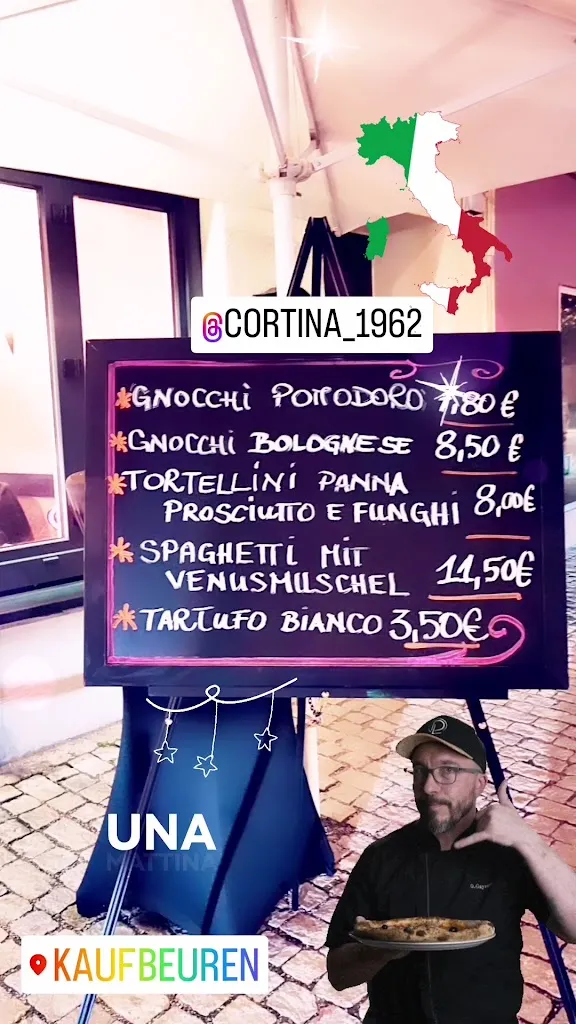 @CORTINA_1962
*GNOCCHI POMODORO 7,80 €
*GNOCCHI BOLOGNESE 8,50 €
*TORTELLINI PANNA
PROSCIUTTO E FUNGHI 8,00€
*SPAGHETTI MIT
VENUSMUSCHEL 11,50€
*TARTUFO BIANCO 3,50€
UNA
MATTINA
KAUFBEUREN